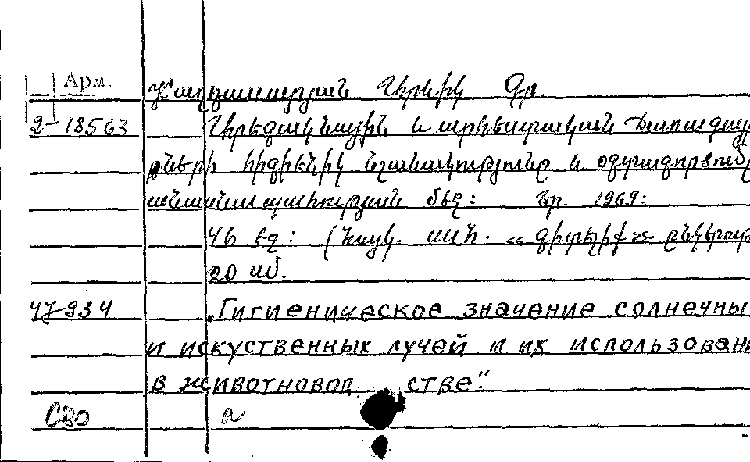 Арм.
Վիրեկիկ Գր.
2-18563 Արեգակնային և արհեստական ճառագայթ
ների հիգիենիկ նշանակությունը և օգտագործումը
անասնապահության մեջ: Եր. 1969:
46 էջ: (Հայկ. ՍՍՀ. «Գիտելիք» ընկերութ
20 սմ.
47-934 „Гигиеническое значение солнечны
и искуственных лучей и их использован
в животновод стве."
СВО а